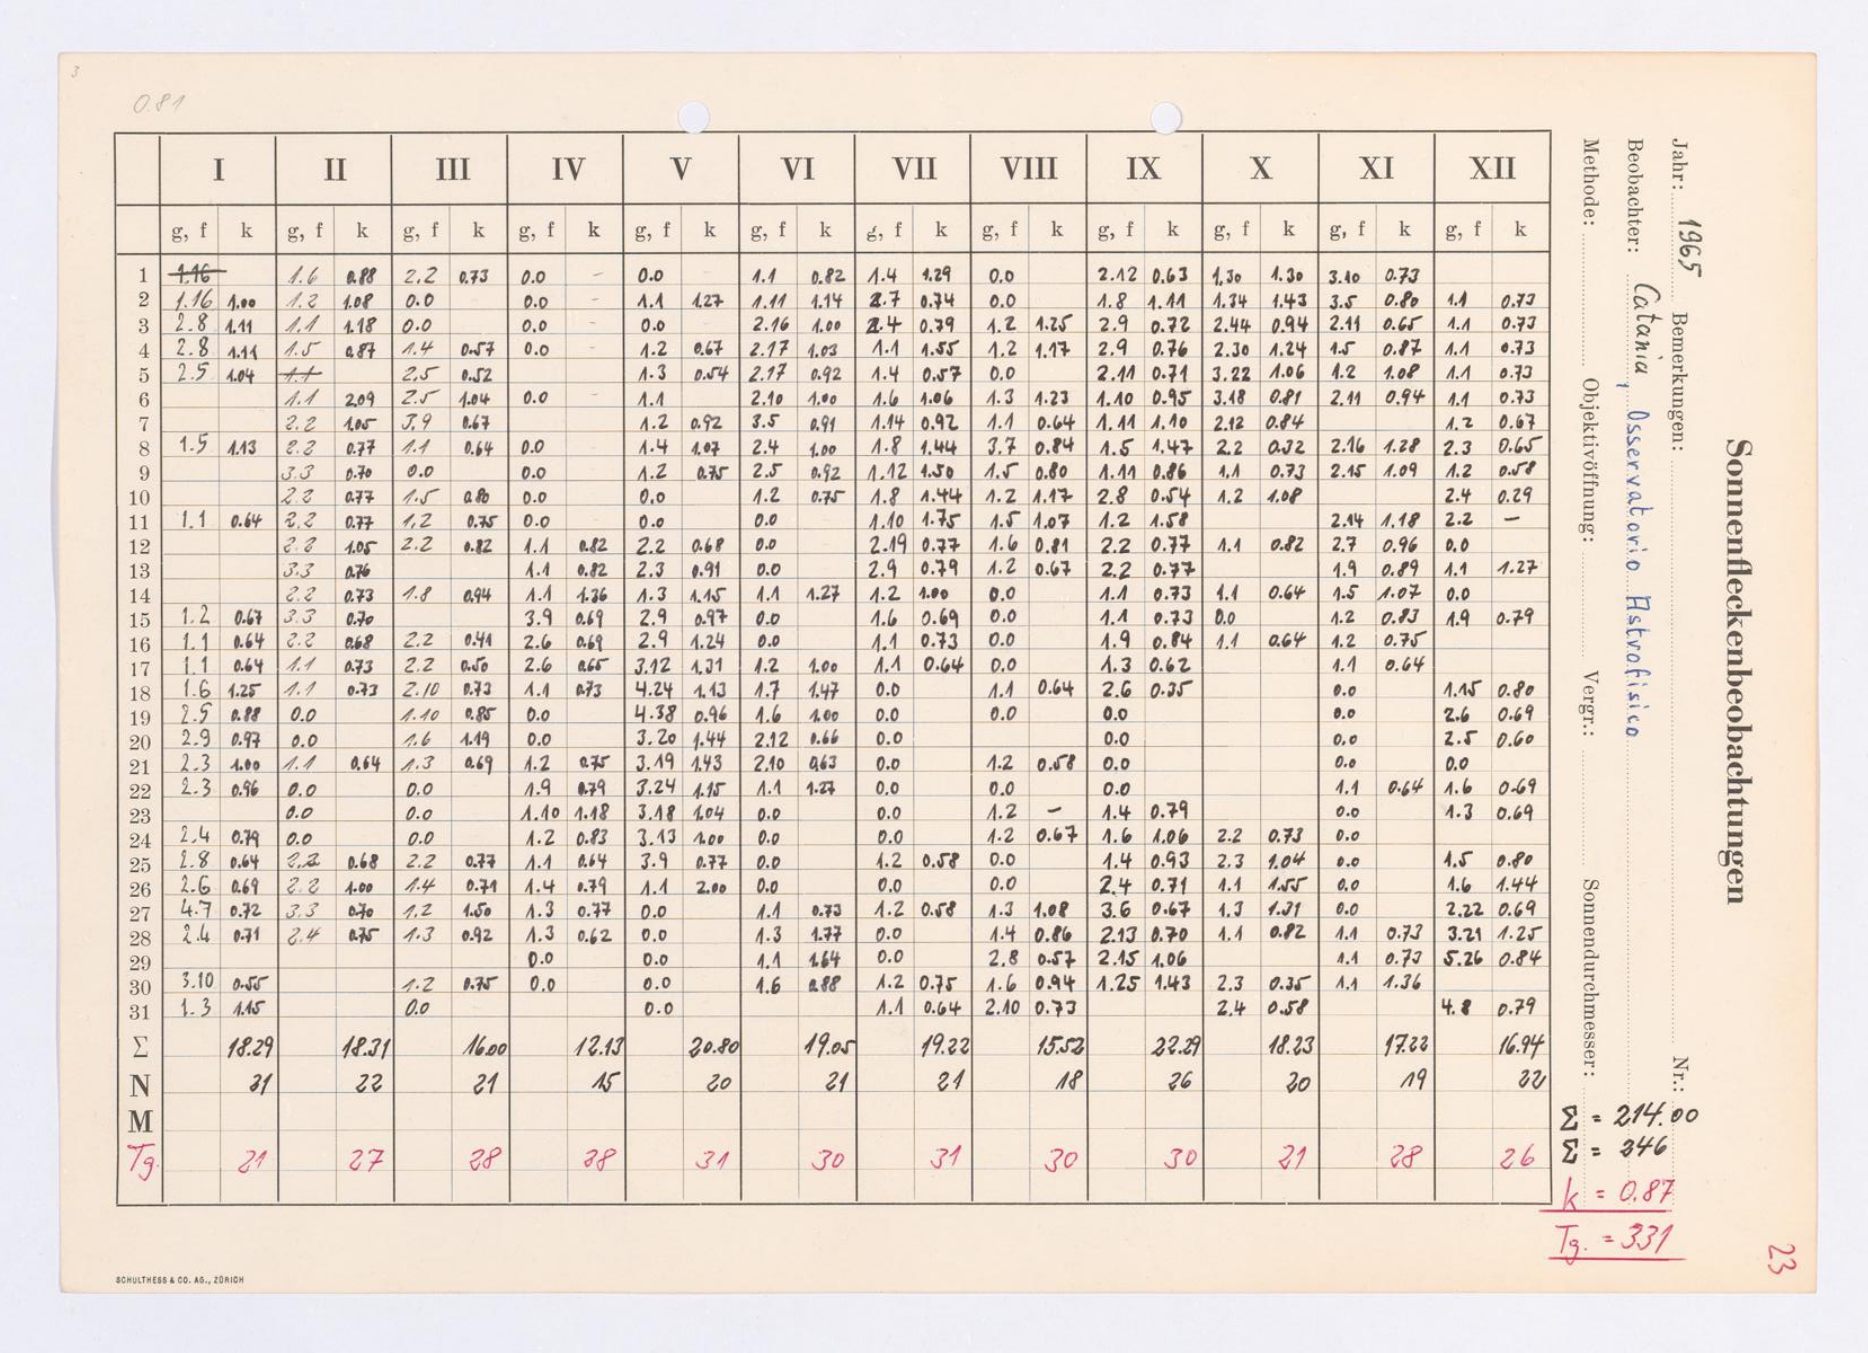 3
0.81
I II III IV V VI VII VIII IX X XI XII
g, f k g, f k g, f k g, f k g, f k g, f k g, f k g, f k g, f k g, f k g, f k g, f k
1 1.16 1.6 0.88 2.2 0.73 0.0 - 0.0 1.1 0.82 1.4 1.29 0.0 2.12 0.63 1.30 1.30 3.10 0.73
2 1.16 1.00 1.2 1.08 0.0 0.0 - 1.1 1.27 1.11 1.14 2.7 0.74 0.0 1.8 1.11 1.34 1.43 3.5 0.80 1.1 0.73
3 2.8 1.11 1.1 1.18 0.0 0.0 - 0.0 2.16 1.00 2.4 0.79 1.2 1.25 2.9 0.72 2.44 0.94 2.11 0.65 1.1 0.73
4 2.8 1.11 1.5 0.87 1.4 0.57 0.0 - 1.2 0.67 2.17 1.03 1.1 1.55 1.2 1.17 2.9 0.76 2.30 1.24 1.5 0.87 1.1 0.73
5 2.5 1.04 1.1 2.5 0.52 1.3 0.54 2.17 0.92 1.4 0.57 0.0 2.11 0.71 3.22 1.06 1.2 1.08 1.1 0.73
6 1.1 2.09 2.5 1.04 0.0 1.1 2.10 1.00 1.6 1.06 1.3 1.23 1.10 0.95 3.18 0.81 2.11 0.94 1.1 0.73
7 2.2 1.05 3.9 0.67 1.2 0.92 3.5 0.91 1.14 0.92 1.1 0.64 1.11 1.10 2.12 0.84 1.2 0.67
8 1.5 1.13 2.2 0.77 1.1 0.64 0.0 1.4 1.07 2.4 1.00 1.8 1.44 3.7 0.84 1.5 1.47 2.2 0.32 2.16 1.28 2.3 0.65
9 3.3 0.70 0.0 0.0 1.2 0.75 2.5 0.92 1.12 1.50 1.5 0.80 1.11 0.86 1.1 0.73 2.15 1.09 1.2 0.58
10 2.2 0.77 1.5 0.80 0.0 0.0 1.2 0.75 1.8 1.44 1.2 1.17 2.8 0.54 1.2 1.08 2.4 0.29
11 1.1 0.64 2.2 0.77 1.2 0.75 0.0 0.0 0.0 1.10 1.75 1.5 1.07 1.2 1.58 2.14 1.18 2.2 -
12 2.2 1.05 2.2 0.82 1.1 0.82 2.2 0.68 0.0 2.19 0.77 1.6 0.81 2.2 0.77 1.1 0.82 2.7 0.96 0.0
13 3.3 0.76 1.1 0.82 2.3 0.91 0.0 2.9 0.79 1.2 0.67 2.2 0.77 1.9 0.89 1.1 1.27
14 2.2 0.73 1.8 0.94 1.1 1.36 1.3 1.15 1.1 1.27 1.2 1.00 0.0 1.1 0.73 1.1 0.64 1.5 1.07 0.0
15 1.2 0.67 3.3 0.70 3.9 0.69 2.9 0.97 0.0 1.6 0.69 0.0 1.1 0.73 0.0 1.2 0.83 1.9 0.79
16 1.1 0.64 2.2 0.68 2.2 0.41 2.6 0.69 2.9 1.24 0.0 1.1 0.73 0.0 1.9 0.84 1.1 0.64 1.2 0.75
17 1.1 0.64 1.1 0.73 2.2 0.50 2.6 0.65 3.12 1.31 1.2 1.00 1.1 0.64 0.0 1.3 0.62 1.1 0.64
18 1.6 1.25 1.1 0.73 2.10 0.73 1.1 0.73 4.24 1.13 1.7 1.47 0.0 1.1 0.64 2.6 0.35 0.0 1.15 0.80
19 2.5 0.88 0.0 1.10 0.85 0.0 4.38 0.96 1.6 1.00 0.0 0.0 0.0 0.0 2.6 0.69
20 2.9 0.97 0.0 1.6 1.19 0.0 3.20 1.44 2.12 0.66 0.0 0.0 0.0 2.5 0.60
21 2.3 1.00 1.1 0.64 1.3 0.69 1.2 0.75 3.19 1.43 2.10 0.63 0.0 1.2 0.58 0.0 0.0 0.0
22 2.3 0.96 0.0 0.0 1.9 0.79 3.24 1.15 1.1 1.27 0.0 0.0 0.0 1.1 0.64 1.6 0.69
23 0.0 0.0 1.10 1.18 3.18 1.04 0.0 0.0 1.2 - 1.4 0.79 0.0 1.3 0.69
24 2.4 0.79 0.0 0.0 1.2 0.83 3.13 1.00 0.0 0.0 1.2 0.67 1.6 1.06 2.2 0.73 0.0
25 2.8 0.64 2.2 0.68 2.2 0.77 1.1 0.64 3.9 0.77 0.0 1.2 0.58 0.0 1.4 0.93 2.3 1.04 0.0 1.5 0.80
26 2.6 0.69 2.2 1.00 1.4 0.71 1.4 0.79 1.1 2.00 0.0 0.0 0.0 2.4 0.71 1.1 1.55 0.0 1.6 1.44
27 4.7 0.72 3.3 0.70 1.2 1.50 1.3 0.77 0.0 1.1 0.73 1.2 0.58 1.3 1.08 3.6 0.67 1.3 1.31 0.0 2.22 0.69
28 2.4 0.71 2.4 0.75 1.3 0.92 1.3 0.62 0.0 1.3 1.77 0.0 1.4 0.86 2.13 0.70 1.1 0.82 1.1 0.73 3.21 1.25
29 0.0 0.0 1.1 1.64 0.0 2.8 0.57 2.15 1.06 1.1 0.73 5.26 0.84
30 3.10 0.55 1.2 0.75 0.0 0.0 1.6 0.88 1.2 0.75 1.6 0.94 1.25 1.43 2.3 0.35 1.1 1.36
31 1.3 1.15 0.0 0.0 1.1 0.64 2.10 0.73 2.4 0.58 4.8 0.79
Σ 18.29 18.31 16.00 12.13 20.80 19.05 19.22 15.52 22.29 18.23 17.22 16.94
N 21 22 21 15 20 21 21 18 26 20 19 22
M
Tg. 21 27 28 28 31 30 31 30 30 21 28 26
SCHULTHESS & CO. AG., ZÜRICH
Sonnenfleckenbeobachtungen
Jahr: 1965 Bemerkungen: Nr.:
Beobachter: Catania, Osservatorio Astrofisico
Methode: Objektivöffnung: Vergr.: Sonnendurchmesser:
Σ = 214.00
Σ = 246
k = 0.87
Tg. = 331
23